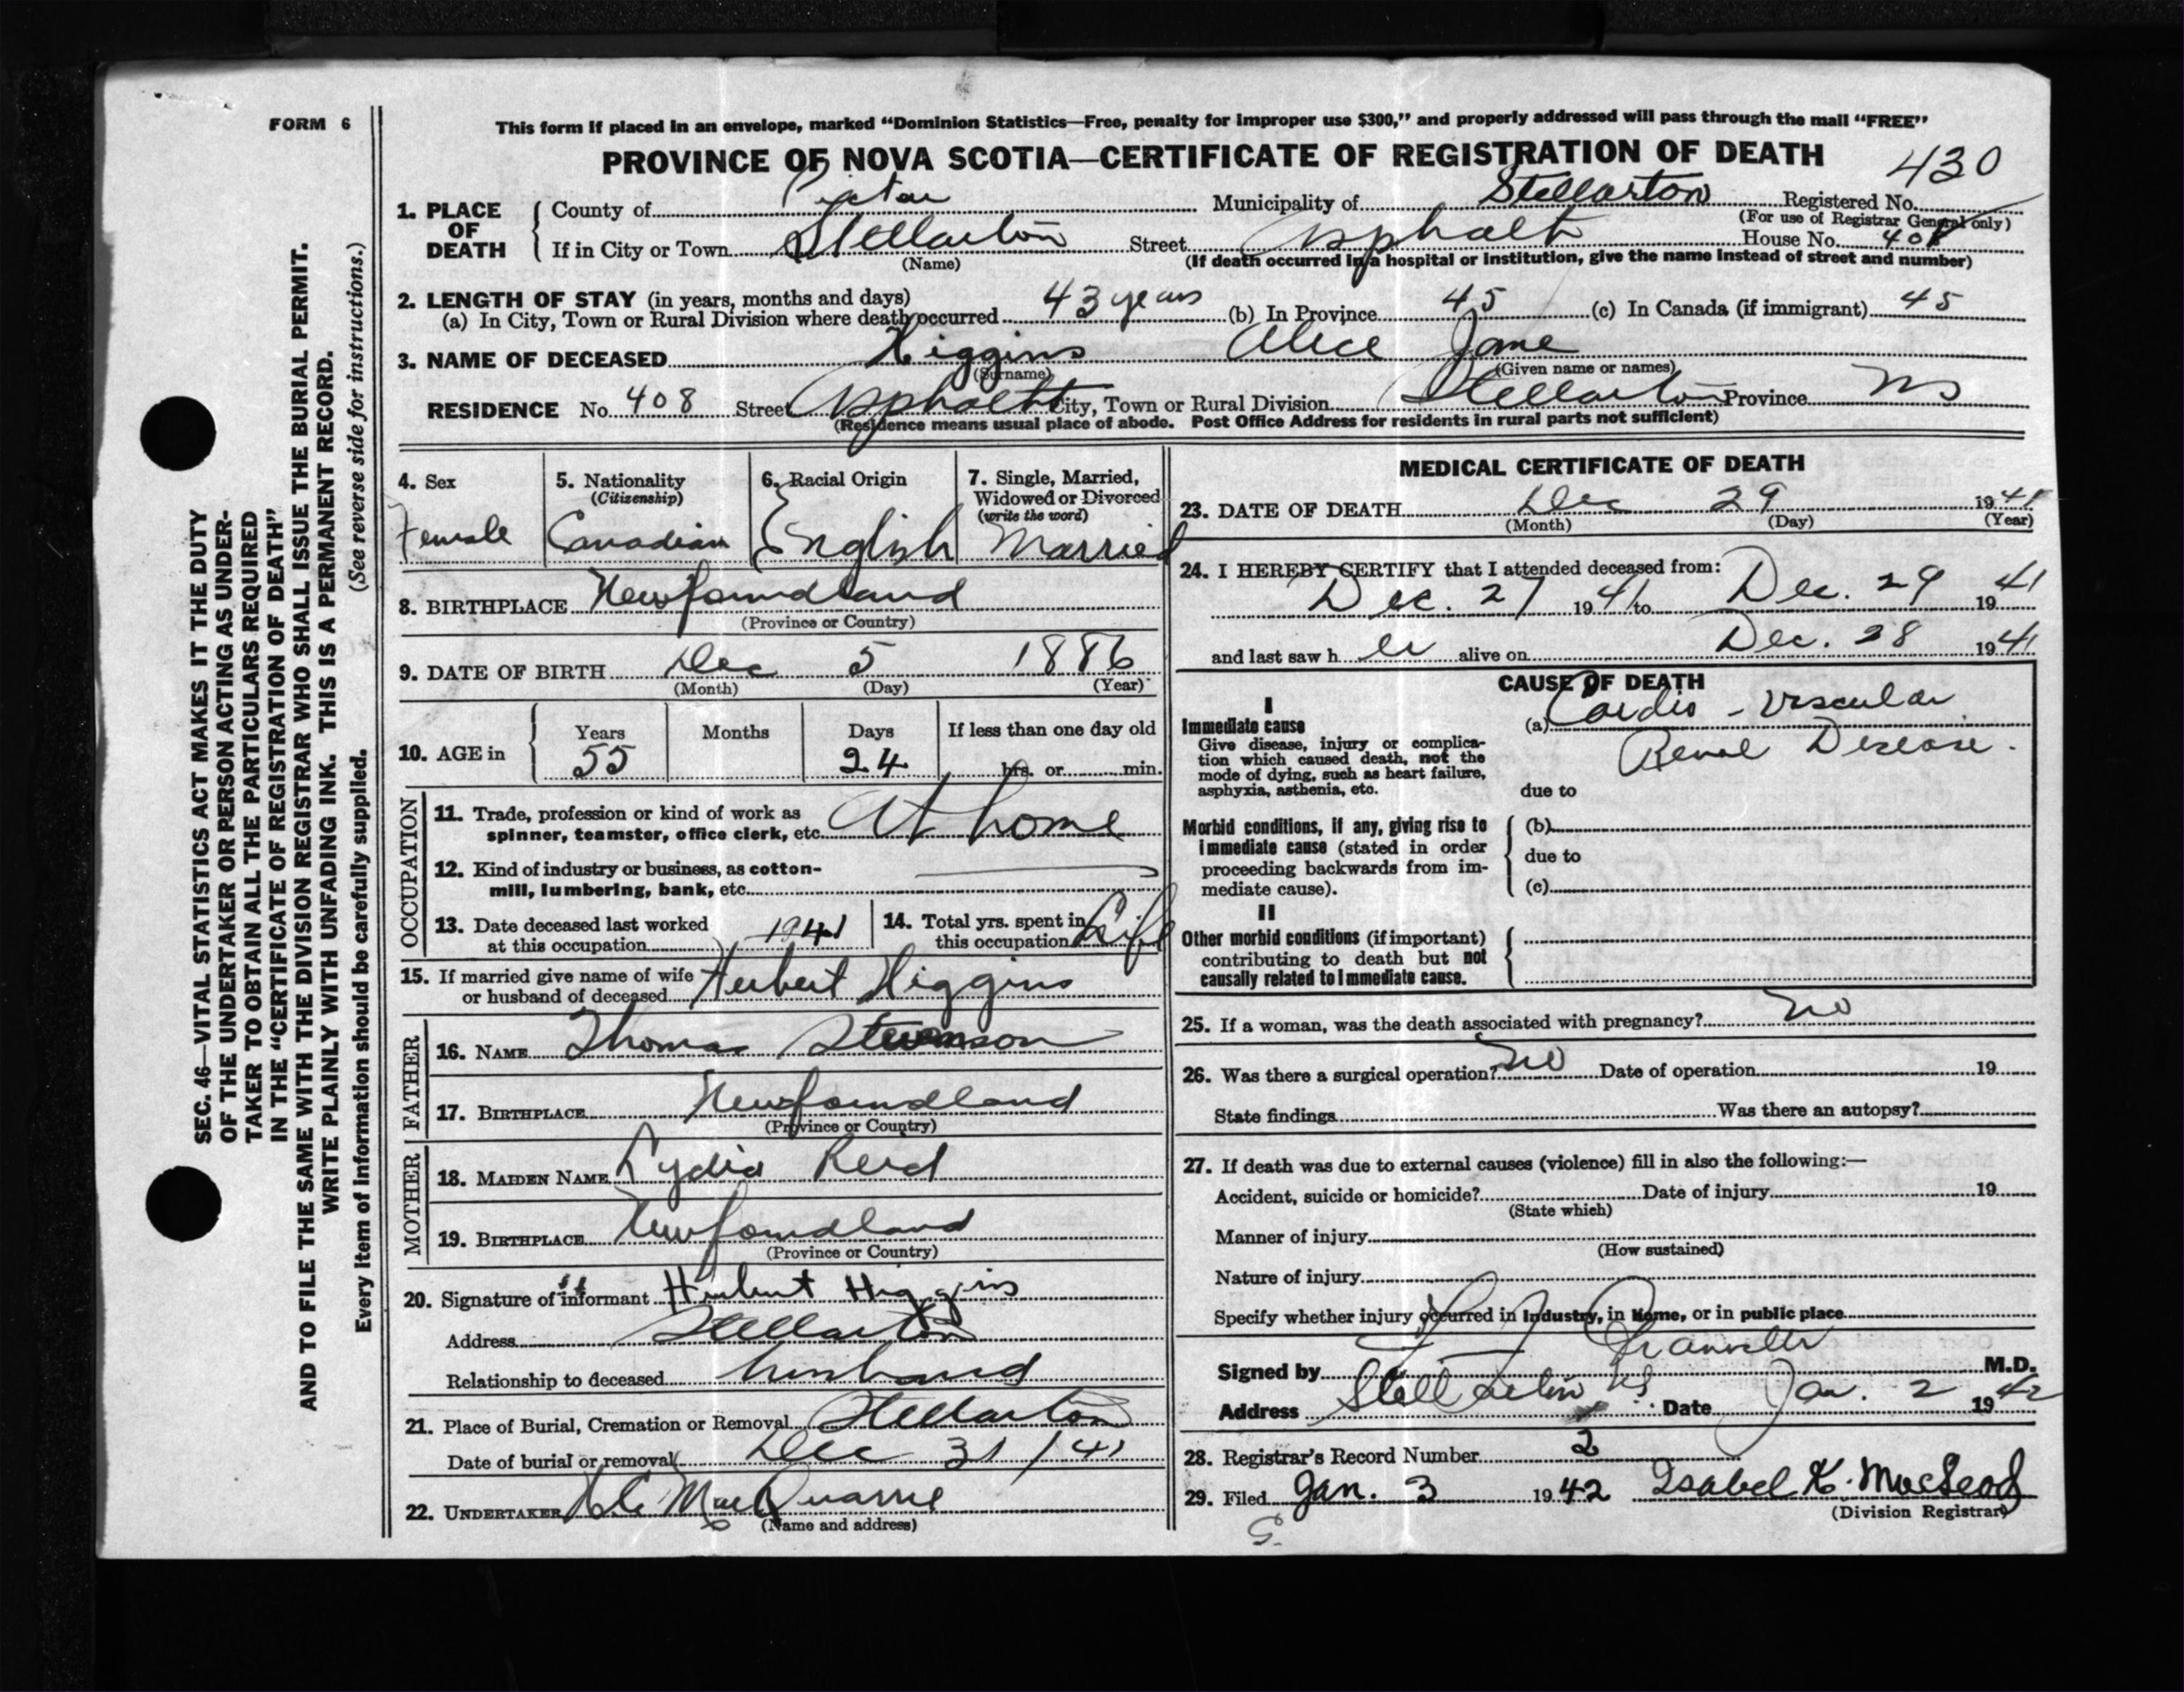 FORM 6
This form if placed in an envelope, marked “Dominion Statistics—Free, penalty for improper use $300,” and properly addressed will pass through the mail “FREE”
PROVINCE OF NOVA SCOTIA—CERTIFICATE OF REGISTRATION OF DEATH
430
1. PLACE OF DEATH
County of Pictou Municipality of Stellarton Registered No.
(For use of Registrar General only)
If in City or Town Stellarton Street Asphalt House No. 408
(Name) (If death occurred in a hospital or institution, give the name instead of street and number)
2. LENGTH OF STAY (in years, months and days)
(a) In City, Town or Rural Division where death occurred 43 years (b) In Province 45 (c) In Canada (if immigrant) 45
3. NAME OF DECEASED Higgins Alice Jane
(Surname) (Given name or names)
RESIDENCE No. 408 Street Asphalt City, Town or Rural Division Stellarton Province NS
(Residence means usual place of abode. Post Office Address for residents in rural parts not sufficient)
4. Sex
Female
5. Nationality
(Citizenship)
Canadian
6. Racial Origin
English
7. Single, Married,
Widowed or Divorced
(write the word)
Married
8. BIRTHPLACE Newfoundland
(Province or Country)
9. DATE OF BIRTH Dec 5 1886
(Month) (Day) (Year)
10. AGE in
Years Months Days If less than one day old
55 24 hrs. or min.
OCCUPATION
11. Trade, profession or kind of work as
spinner, teamster, office clerk, etc. At home
12. Kind of industry or business, as cotton-
mill, lumbering, bank, etc.
13. Date deceased last worked
at this occupation 1941
14. Total yrs. spent in
this occupation Life
15. If married give name of wife
or husband of deceased Herbert Higgins
FATHER
16. NAME Thomas Stevenson
17. BIRTHPLACE Newfoundland
(Province or Country)
MOTHER
18. MAIDEN NAME Lydia Reid
19. BIRTHPLACE Newfoundland
(Province or Country)
20. Signature of informant Herbert Higgins
Address Stellarton
Relationship to deceased husband
21. Place of Burial, Cremation or Removal Stellarton
Date of burial or removal Dec 31 / 41
22. UNDERTAKER MacQuarrie
(Name and address)
MEDICAL CERTIFICATE OF DEATH
23. DATE OF DEATH Dec 29 1941
(Month) (Day) (Year)
24. I HEREBY CERTIFY that I attended deceased from:
Dec. 27 1941 to Dec. 29 1941
and last saw h er alive on Dec. 28 1941
CAUSE OF DEATH
I
Immediate cause
Give disease, injury or complica-
tion which caused death, not the
mode of dying, such as heart failure,
asphyxia, asthenia, etc.
(a) Cardio - Vascular
Renal Disease.
due to
Morbid conditions, if any, giving rise to
immediate cause (stated in order
proceeding backwards from im-
mediate cause).
(b)
due to
(c)
II
Other morbid conditions (if important)
contributing to death but not
causally related to immediate cause.
25. If a woman, was the death associated with pregnancy? No
26. Was there a surgical operation? No Date of operation 19
State findings Was there an autopsy?
27. If death was due to external causes (violence) fill in also the following:—
Accident, suicide or homicide? Date of injury 19
(State which)
Manner of injury
(How sustained)
Nature of injury
Specify whether injury occurred in Industry, in Home, or in public place
Signed by M.D.
Address Stellarton NS Date Jan. 2 1942
28. Registrar's Record Number 2
29. Filed Jan. 3 1942 Isabel K. MacLeod
(Division Registrar)
SEC. 46—VITAL STATISTICS ACT MAKES IT THE DUTY
OF THE UNDERTAKER OR PERSON ACTING AS UNDER-
TAKER TO OBTAIN ALL THE PARTICULARS REQUIRED
IN THE “CERTIFICATE OF REGISTRATION OF DEATH”
AND TO FILE THE SAME WITH THE DIVISION REGISTRAR WHO SHALL ISSUE THE BURIAL PERMIT.
WRITE PLAINLY WITH UNFADING INK. THIS IS A PERMANENT RECORD.
Every item of information should be carefully supplied. (See reverse side for instructions.)